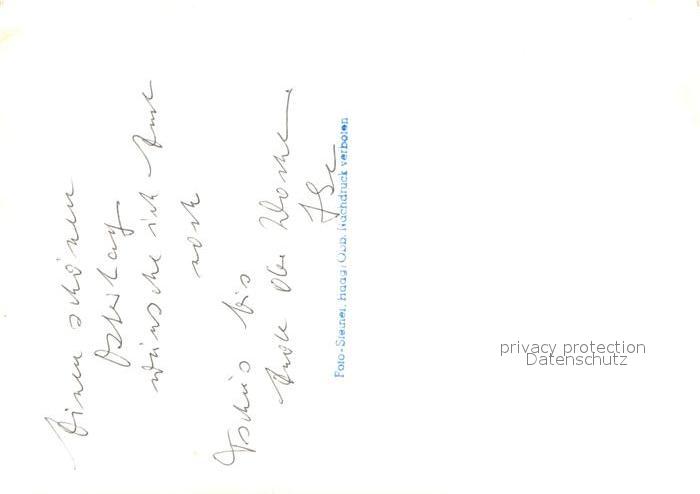 Einen schönen
Ostertag
wünsche ich Euch
noch
Tschüs bis
Ende der Woche
Foto-Steiner, Haag/Obb. Nachdruck verboten
privacy protection
Datenschutz